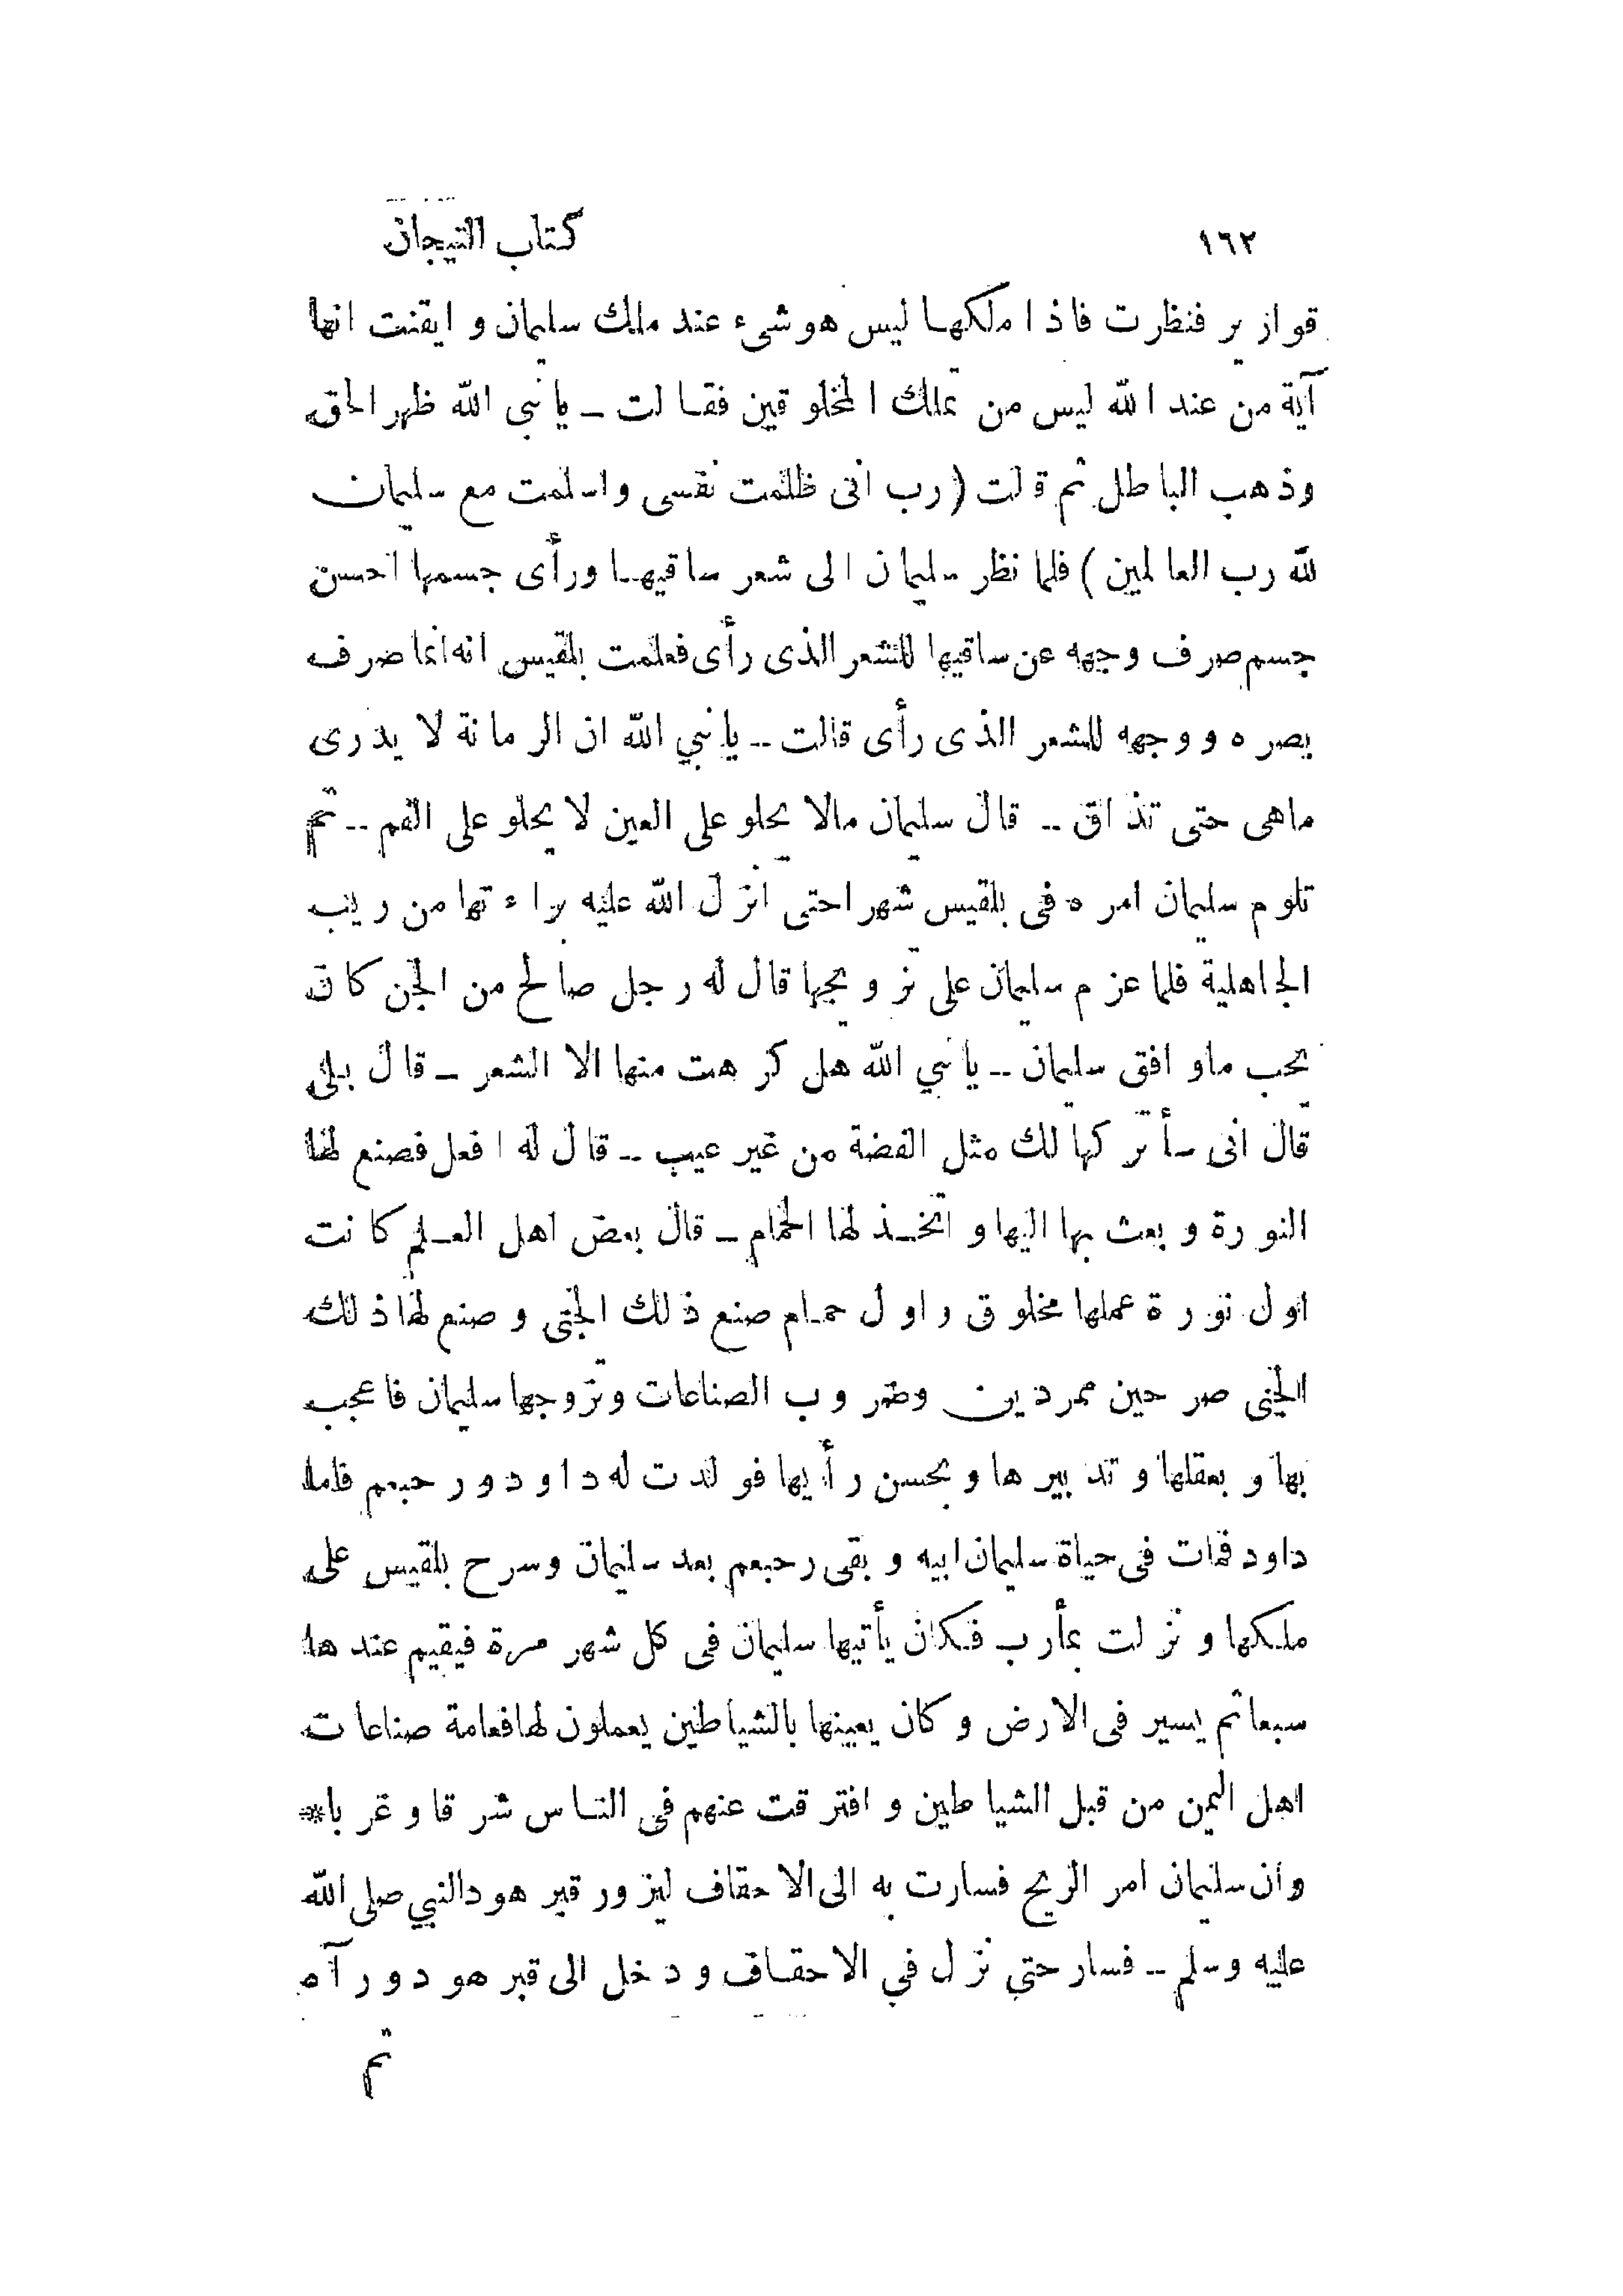 ١٦٢ كتاب التيجان
قوارير فنظرت فاذا ملكها ليس هو شىء عند ملك سليمان و ايقنت انها
آية من عند الله ليس من تملك المخلوقين فقالت ـ يا نبى الله ظهر الحق
وذهب الباطل ثم قالت (رب انى ظلمت نفسى واسلمت مع سليمان
لله رب العالمين) فلما نظر سليمان الى شعر ساقيها ورأى جسمها احسن
جسم صرف وجهه عن ساقيها للشعر الذى رأى فعلمت بلقيس انه انما صرف
بصره ووجهه للشعر الذى رأى قالت ـ يا نبي الله ان الرمانة لا يدرى
ماهى حتى تذاق ـ قال سليمان مالا يحلو على العين لا يحلو على الفم ـ ثم
تلوم سليمان امره فى بلقيس شهرا حتى انزل الله عليه براءتها من ريب
الجاهلية فلما عزم سليمان على تزويجها قال له رجل صالح من الجن كان
يحب ماوافق سليمان ـ يا نبي الله هل كرهت منها الا الشعر ـ قال بلى
قال انى سأتركها لك مثل الفضة من غير عيب ـ قال له افعل فصنع لها
النورة وبعث بها اليها و اتخذ لها الحمام ـ قال بعض اهل العلم كانت
اول نورة عملها مخلوق واول حمام صنع ذلك الجنى و صنع لها ذلك
الجنى صرحين ممردين وضروب الصناعات وتزوجها سليمان فاعجب
بها و بعقلها و تدبيرها و بحسن رأيها فولدت له داود و رحبعم فاما
داود فمات فى حياة سليمان ابيه و بقى رحبعم بعد سليمان وسرح بلقيس على
ملكها و نزلت بمأرب فكان يأتيها سليمان فى كل شهر مرة فيقيم عندها
سبعا ثم يسير فى الارض و كان يعينها بالشياطين يعملون لها فعامة صناعات
اهل اليمن من قبل الشياطين و افترقت عنهم فى الناس شرقا و غربا*
وان سليمان امر الريح فسارت به الى الاحقاف ليزور قبر هود النبي صلى الله
عليه وسلم ـ فسار حتى نزل في الاحقاف و دخل الى قبر هود و رآه
ثم